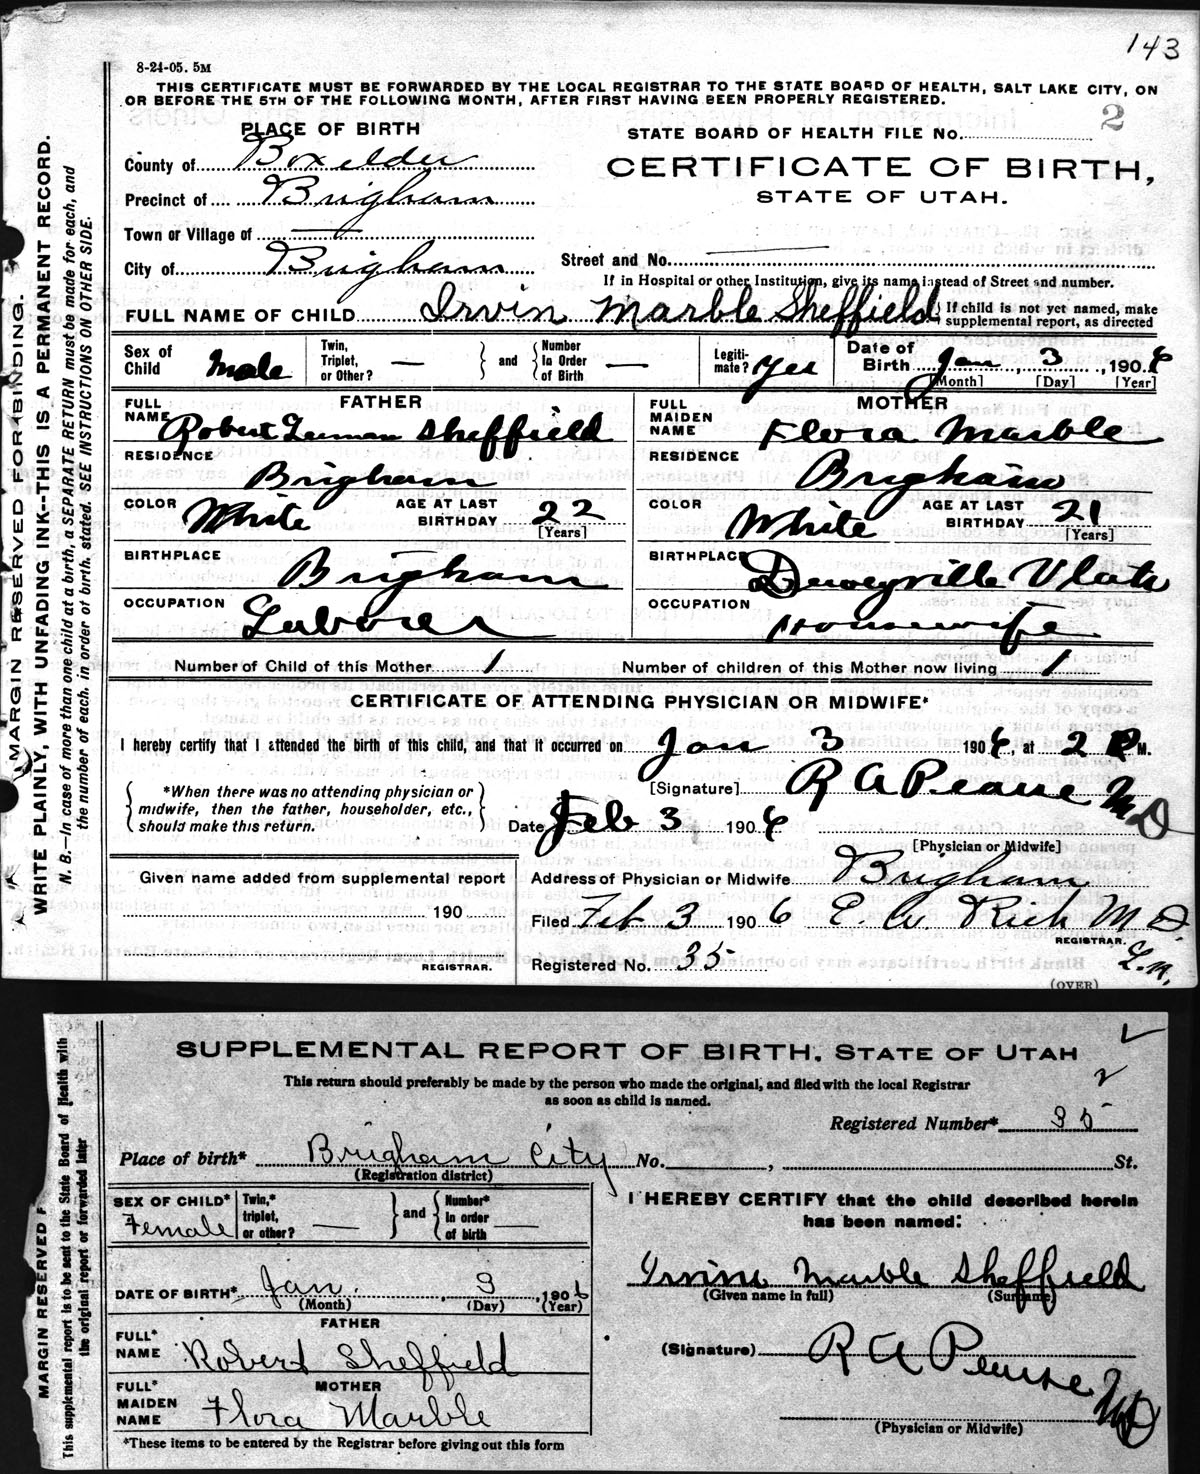 143
8-24-05. 5M
THIS CERTIFICATE MUST BE FORWARDED BY THE LOCAL REGISTRAR TO THE STATE BOARD OF HEALTH, SALT LAKE CITY, ON
OR BEFORE THE 5TH OF THE FOLLOWING MONTH, AFTER FIRST HAVING BEEN PROPERLY REGISTERED.
MARGIN RESERVED FOR BINDING.
WRITE PLAINLY, WITH UNFADING INK--THIS IS A PERMANENT RECORD.
N. B.—In case of more than one child at a birth, a SEPARATE RETURN must be made for each, and
the number of each, in order of birth, stated. SEE INSTRUCTIONS ON OTHER SIDE.
PLACE OF BIRTH
STATE BOARD OF HEALTH FILE No. 2
County of Boxelder
CERTIFICATE OF BIRTH,
Precinct of Brigham
STATE OF UTAH.
Town or Village of —
City of Brigham
Street and No. —
If in Hospital or other Institution, give its name instead of Street and number.
FULL NAME OF CHILD Irvin Marble Sheffield
If child is not yet named, make
supplemental report, as directed
Sex of Child Male
Twin, Triplet, or Other? — and Number in Order of Birth —
Legitimate? Yes
Date of Birth Jan 3, 1906
[Month] [Day] [Year]
FATHER
FULL NAME Robert Leeman Sheffield
RESIDENCE Brigham
COLOR White AGE AT LAST BIRTHDAY 22
[Years]
BIRTHPLACE Brigham
OCCUPATION Laborer
MOTHER
FULL MAIDEN NAME Flora Marble
RESIDENCE Brigham
COLOR White AGE AT LAST BIRTHDAY 21
[Years]
BIRTHPLACE Deweyville Utah
OCCUPATION Housewife
Number of Child of this Mother 1 Number of children of this Mother now living 1
CERTIFICATE OF ATTENDING PHYSICIAN OR MIDWIFE*
I hereby certify that I attended the birth of this child, and that it occurred on Jan 3 1906, at 2 P M.
*When there was no attending physician or
midwife, then the father, householder, etc.,
should make this return.
[Signature] R A Pearse M D
Date Feb 3 1906
[Physician or Midwife]
Given name added from supplemental report
190
REGISTRAR.
Address of Physician or Midwife Brigham
Filed Feb 3 1906 E. W. Rich M D.
REGISTRAR.
Registered No. 35
(OVER)
SUPPLEMENTAL REPORT OF BIRTH, STATE OF UTAH
This return should preferably be made by the person who made the original, and filed with the local Registrar
as soon as child is named.
2
Registered Number* 35
MARGIN RESERVED F
This supplemental report is to be sent to the State Board of Health with
the original report or forwarded later
Place of birth* Brigham City No. , St.
(Registration district)
SEX OF CHILD* Female
Twin,* triplet, or other? — and Number* in order of birth —
DATE OF BIRTH* Jan. 3, 1906
(Month) (Day) (Year)
FATHER
FULL* NAME Robert Sheffield
MOTHER
FULL* MAIDEN NAME Flora Marble
*These items to be entered by the Registrar before giving out this form
I HEREBY CERTIFY that the child described herein
has been named:
Irvine Marble Sheffield
(Given name in full) (Surname)
(Signature) R A Pearse M D
(Physician or Midwife)